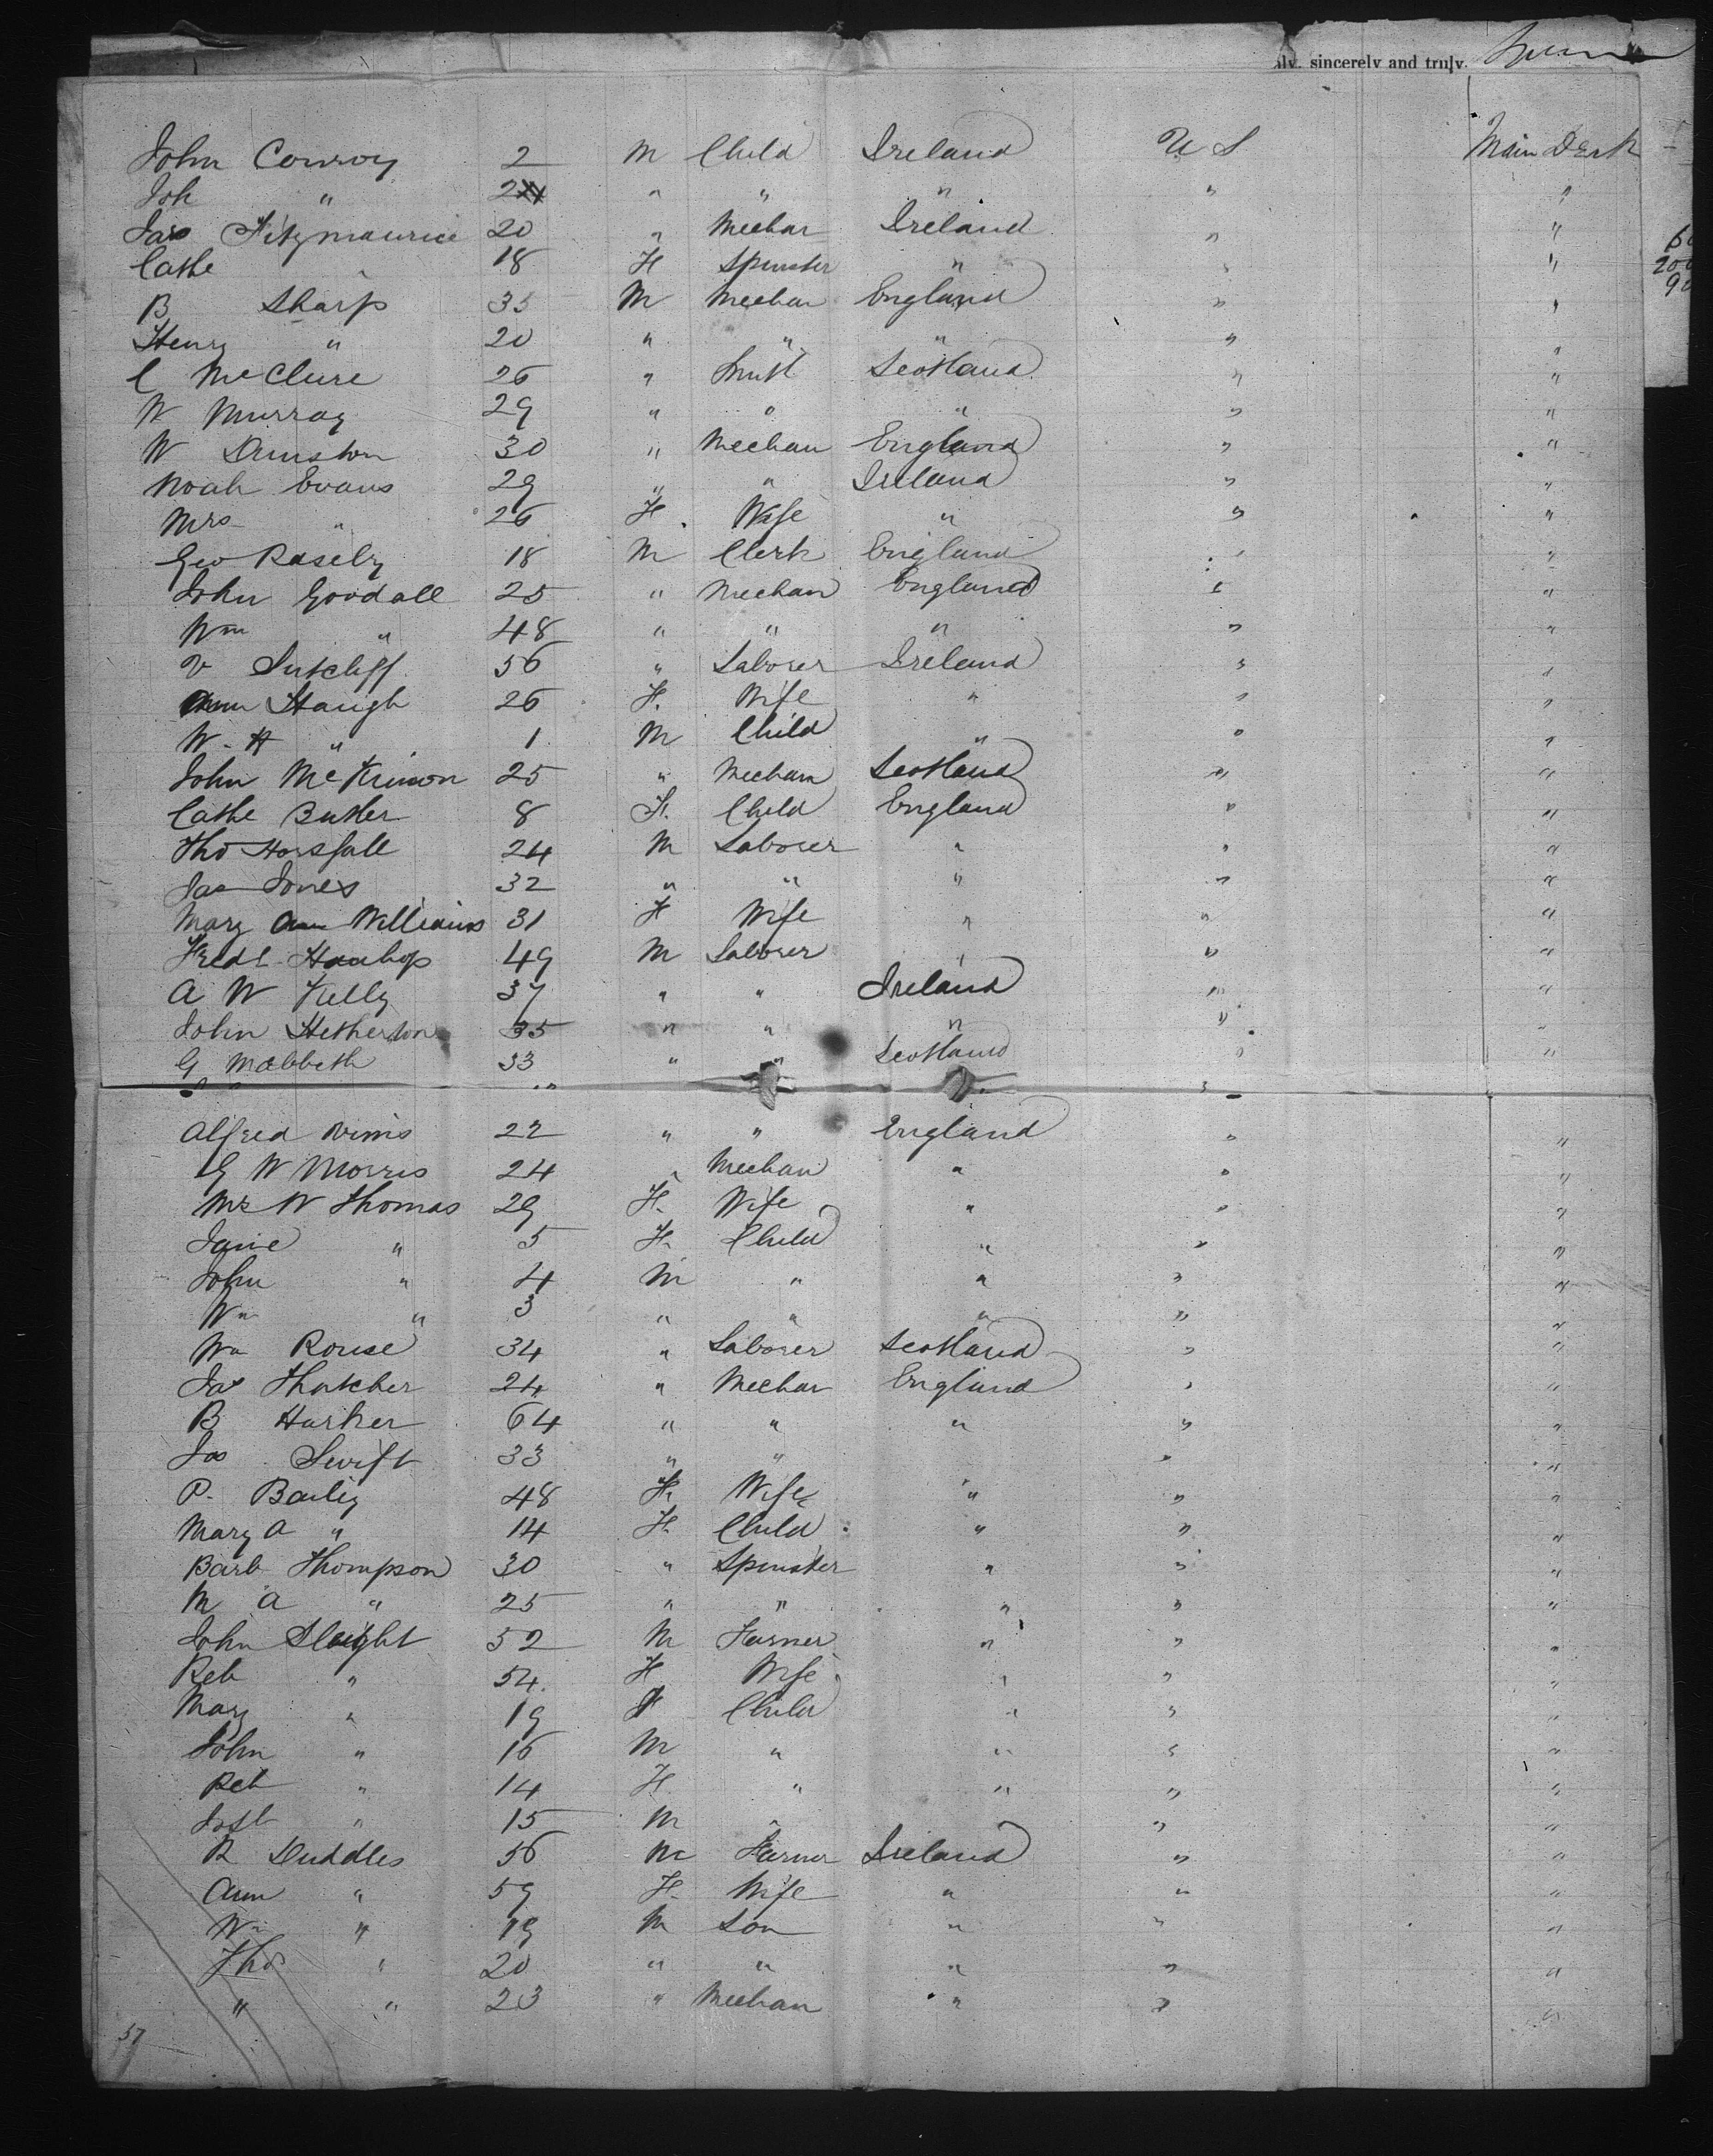 aly, sincerely and truly,
John Conroy 2 M Child Ireland U S Main Deck
Joh " 2 " " " " "
Jas Fitzmaurice 20 " Mechan Ireland " "
Cathe " 18 F Spinster " " "
B Sharp 35 M Mechan England " "
Henry " 20 " " " " "
C McClure 26 " Scotland " "
W Murray 29 " " " " "
W 30 " Mechan England " "
Noah Evans 29 " " Ireland " "
Mrs " 26 F. Wife " " "
Geo 18 M Clerk England " "
John Goodall 25 " Mechan England " "
Wm " 48 " " " " "
Sutcliff 56 " Laborer Ireland " "
Ann Haugh 26 F. Wife " " "
W. H " 1 M Child " " "
John McKinnon 25 " Mechan Scotland " "
Cathe Butler 8 F. Child England " "
Tho Horsfall 24 M Laborer " " "
Jas Jones 32 " " " " "
Mary Ann Williams 31 F Wife " " "
Fredk 49 M Laborer " " "
A W Kelly 37 " " Ireland " "
John Hetherton 35 " " " " "
G Macbbeth 33 " " Scotland " "
Alfred 22 " " England " "
G W Morris 24 " Mechan " " "
Mrs W Thomas 29 F. Wife " " "
Jane " 5 F. Child " " "
John " 4 M " " " "
Wm " 3 " " " " "
Wm Rouse 34 " Laborer Scotland " "
Jas Thatcher 24 " Mechan England " "
B Harker 64 " " " " "
Jas Swift 33 " " " "
P. Baily 48 F. Wife " " "
Mary A " 14 F. Child " " "
Barb Thompson 30 " Spinster " " "
M A " 25 " " " " "
John Sleight 52 M Farmer " " "
Reb " 54. F Wife " " "
Mary " 19 F Child " " "
John " 16 M " " " "
Reb " 14 F " " " "
" 15 M " " "
R Duddles 56 M Farmer Ireland " "
Ann " 59 F. Wife " " "
Wm " 19 M Son " " "
Tho " 20 " " " " "
" " 23 " Mechan " " "
57